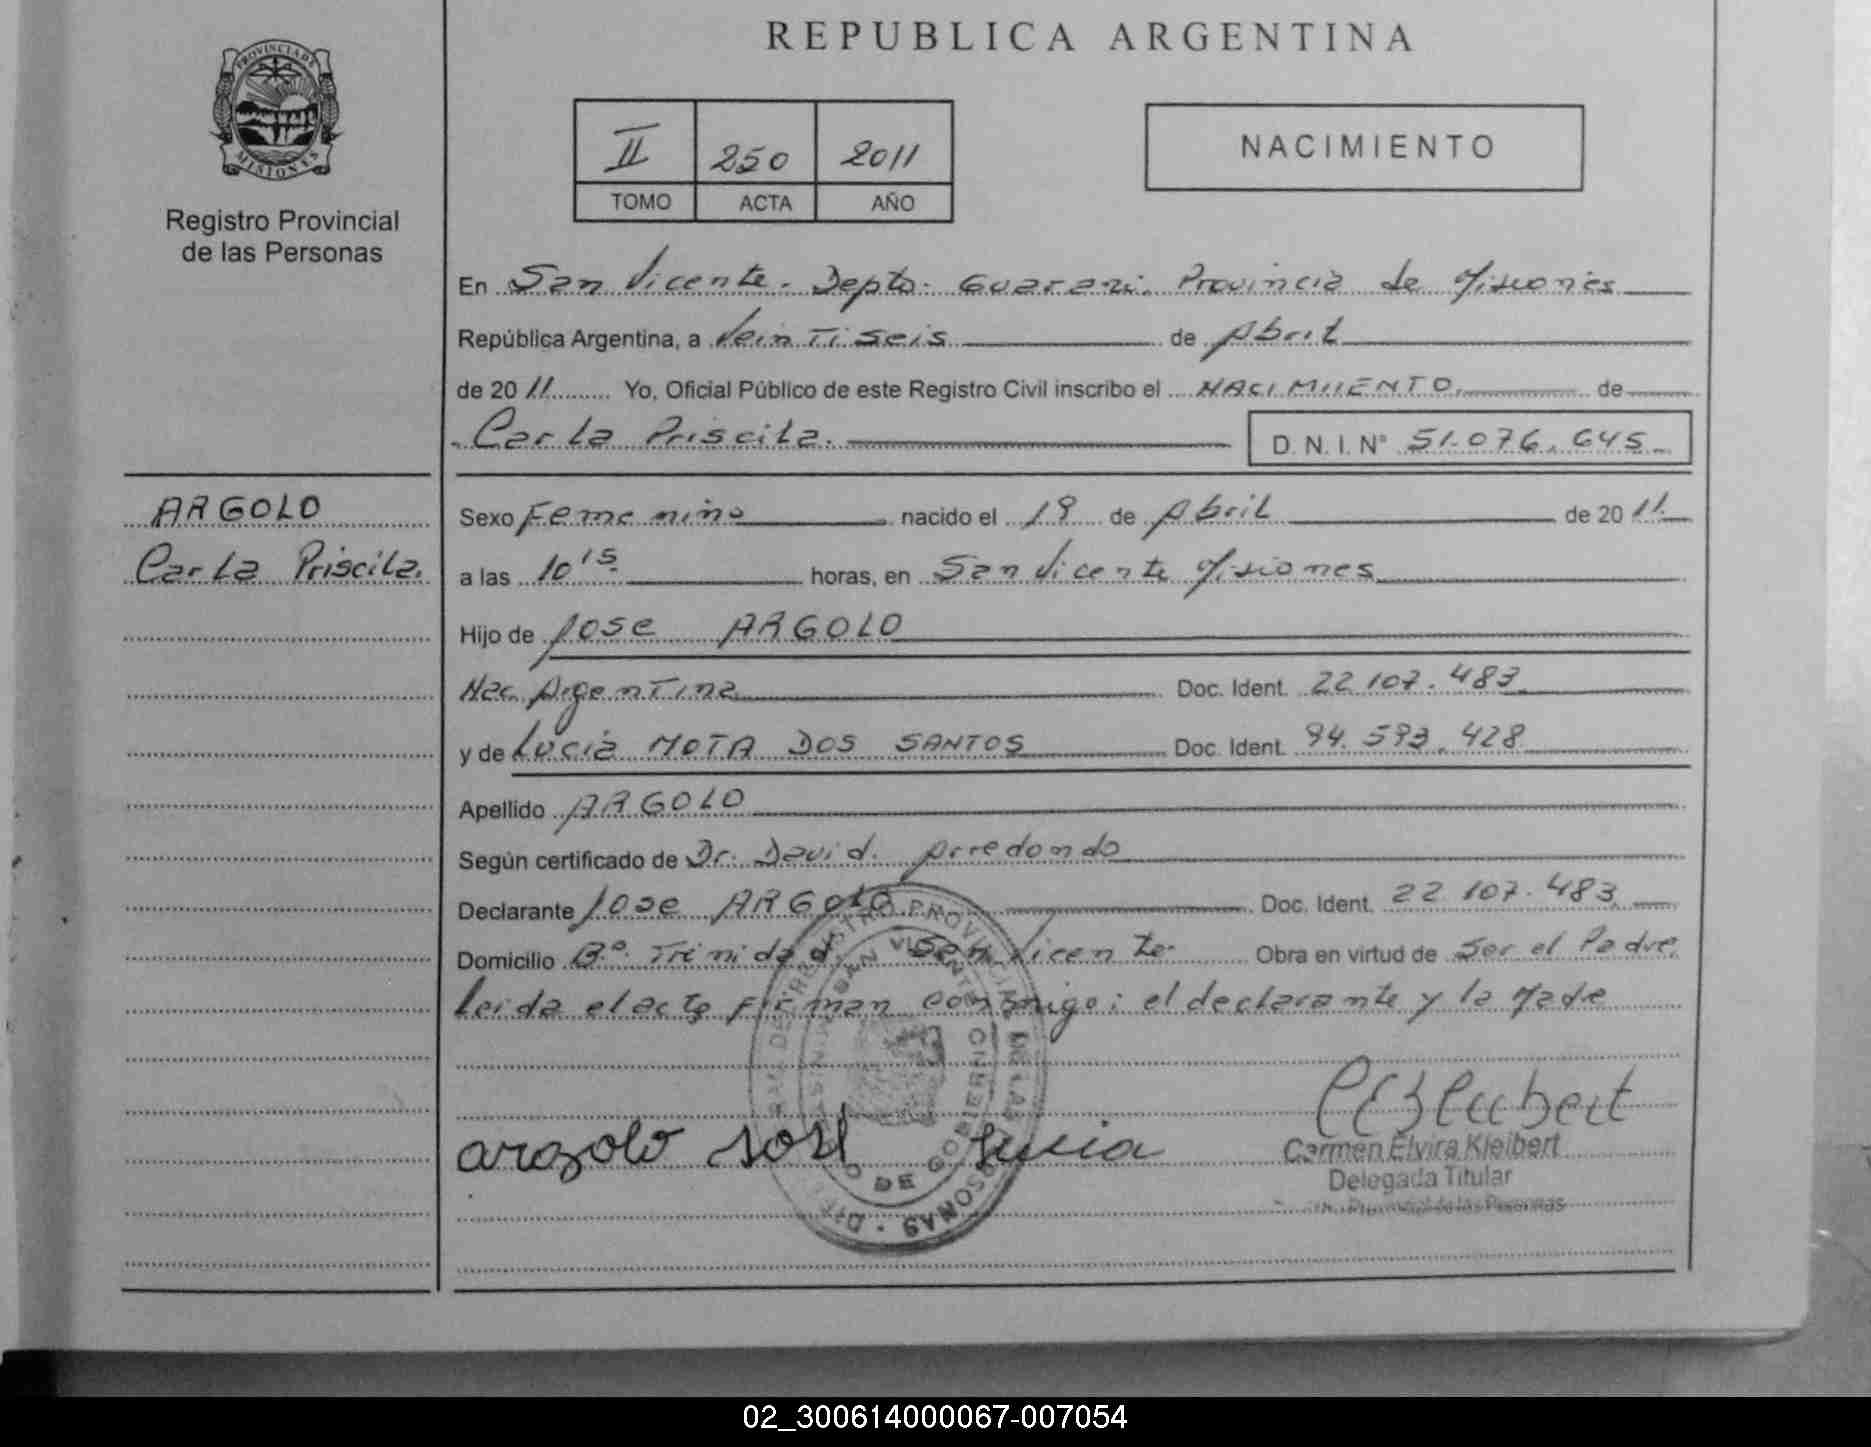 REPUBLICA ARGENTINA
PROVINCIA DE
MISIONES
Registro Provincial
de las Personas
II 250 2011
TOMO ACTA AÑO
NACIMIENTO
En San Vicente. Depto. Guarani. Provincia de Misiones
República Argentina, a Veintiseis de Abril
de 2011 Yo, Oficial Público de este Registro Civil inscribo el NACIMIIENTO. de
Carla Priscila. D. N. I. N° 51.076.645
ARGOLO
Carla Priscila.
Sexo Femenino nacido el 19 de Abril de 2011.
a las 10 15 horas, en San Vicente Misiones
Hijo de Jose ARGOLO
Nac. Argentina Doc. Ident. 22 107.483
y de Lucia MOTA DOS SANTOS Doc. Ident. 94.593.428
Apellido ARGOLO
Según certificado de Dr. David. Arredondo
Declarante Jose ARGOLO Doc. Ident. 22 107.483
Domicilio B°. Trinidad. San Vicente. Obra en virtud de Ser el Padre.
Leida el acta firman conmigo: el declarante y la Madre
argolo José Lucia
Carmen Elvira Kleibert
Delegada Titular
Provincial de las Personas
02_300614000067-007054